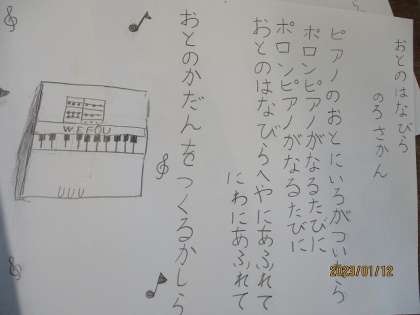 おとのはなびら
のろさかん
ピアノのおとにいろがついたら
ポロンピアノがなるたびに
ポロンピアノがなるたびに
おとのはなびらへやにあふれて
にわにあふれて
おとのかだんをつくるかしら
W.E.FOU
2023/01/12